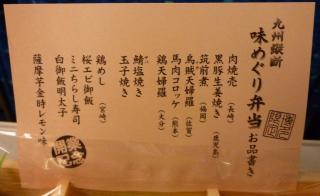 九州縦断
味めぐり弁当
お品書き
博多
限定
肉焼売（長崎）
黒豚生姜焼き（鹿児島）
筑前煮（福岡）
烏賊天婦羅（佐賀）
馬肉コロッケ（熊本）
鶏天婦羅（大分）
鯖塩焼き
玉子焼き
鶏めし（宮崎）
桜エビ御飯
ミニちらし寿司
白御飯明太子
薩摩芋金時レモン味
開業
記念